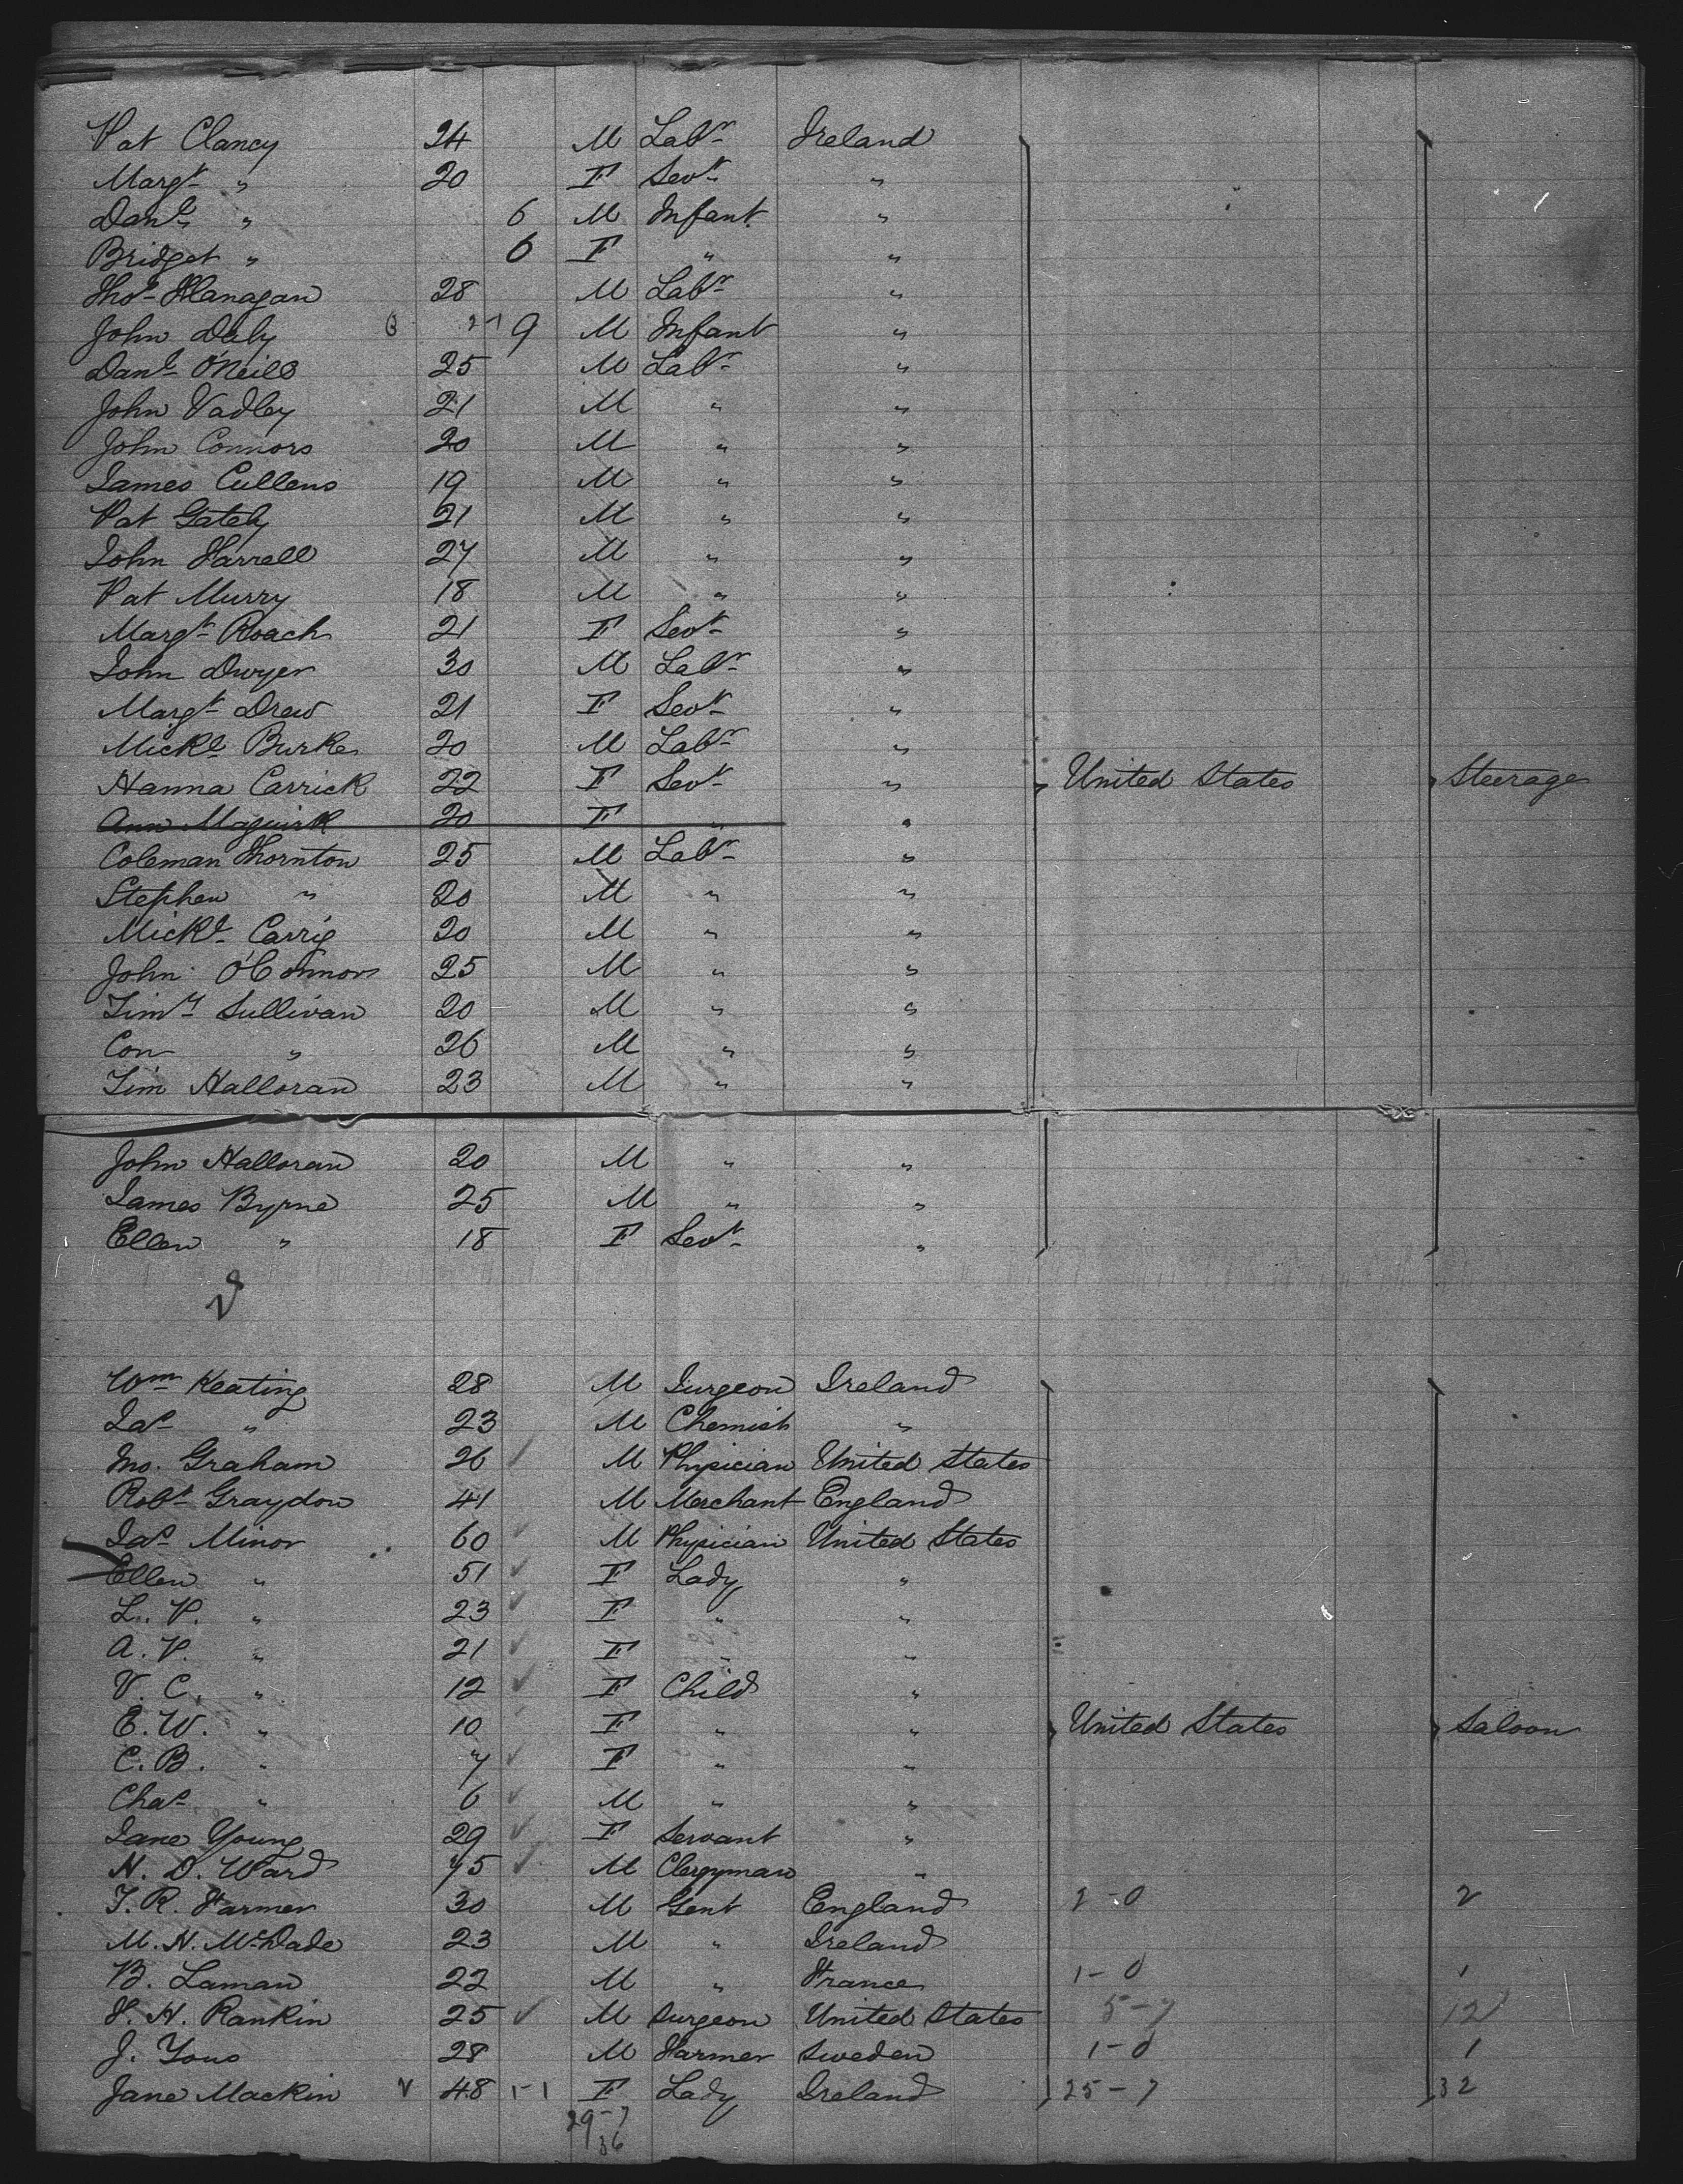 Pat Clancy 24 M Labr Ireland
Margt " 20 F Sevt "
Danl " 6 M Infant "
Bridget " 6 F " "
Thos Flanagan 28 M Labr "
John Daly 9 M Infant "
Danl O'Neill 25 M Labr "
John Vadley 21 M " "
John Connors 20 M " "
James Cullens 19 M " "
Pat Gately 21 M " "
John Farrell 27 M " "
Pat Murry 18 M " "
Margt Roach 21 F Sevt "
John Dwyer 30 M Labr "
Margt Drew 21 F Sevt "
Mickl Burke 20 M Labr "
Hanna Carrick 22 F Sevt " United States Steerage
Ann Maguirk 20 F " "
Coleman Thornton 25 M Labr "
Stephen " 20 M " "
Mickl Carrig 20 M " "
John O'Connors 25 M " "
Timy Sullivan 20 M " "
Con " 26 M " "
Tim Halloran 23 M " "
John Halloran 20 M " "
James Byrne 25 M " "
Ellen " 18 F Sevt "
Wm Keating 28 M Surgeon Ireland
Jas " 23 M Chemist "
Jno. Graham 26 M Physician United States
Robt Graydon 41 M Merchant England
Jas Minor 60 M Physician United States
Ellen " 51 F Lady "
L. P. " 23 F " "
A. P. " 21 F " "
V. C. " 12 F Child "
E. W. " 10 F " " United States Saloon
C. B. " 7 F " "
Chas " 6 M " "
Jane Young 29 F Servant "
N. D. Ward 75 M Clergyman "
T. R. Farmer 30 M Gent England 2-0 2
M. N. McDade 23 M " Ireland
B. Laman 22 M " France 1-0 1
F. H. Rankin 25 M Surgeon United States 5-7 12
J. Yous 28 M Farmer Sweden 1-0 1
Jane Mackin 48 1-1 F Lady Ireland 25-7 32
29-7
36